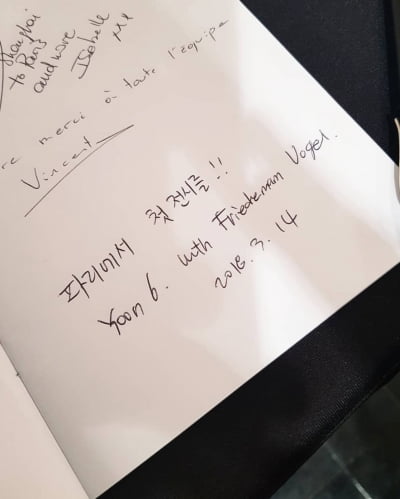 Shanghai
to Paris
and ware
Isabelle
merci à toute l'équipe
Vincent
파리에서 첫 전시를!!
Yoon 6. with Friedemann Vogel.
2018. 3. 14